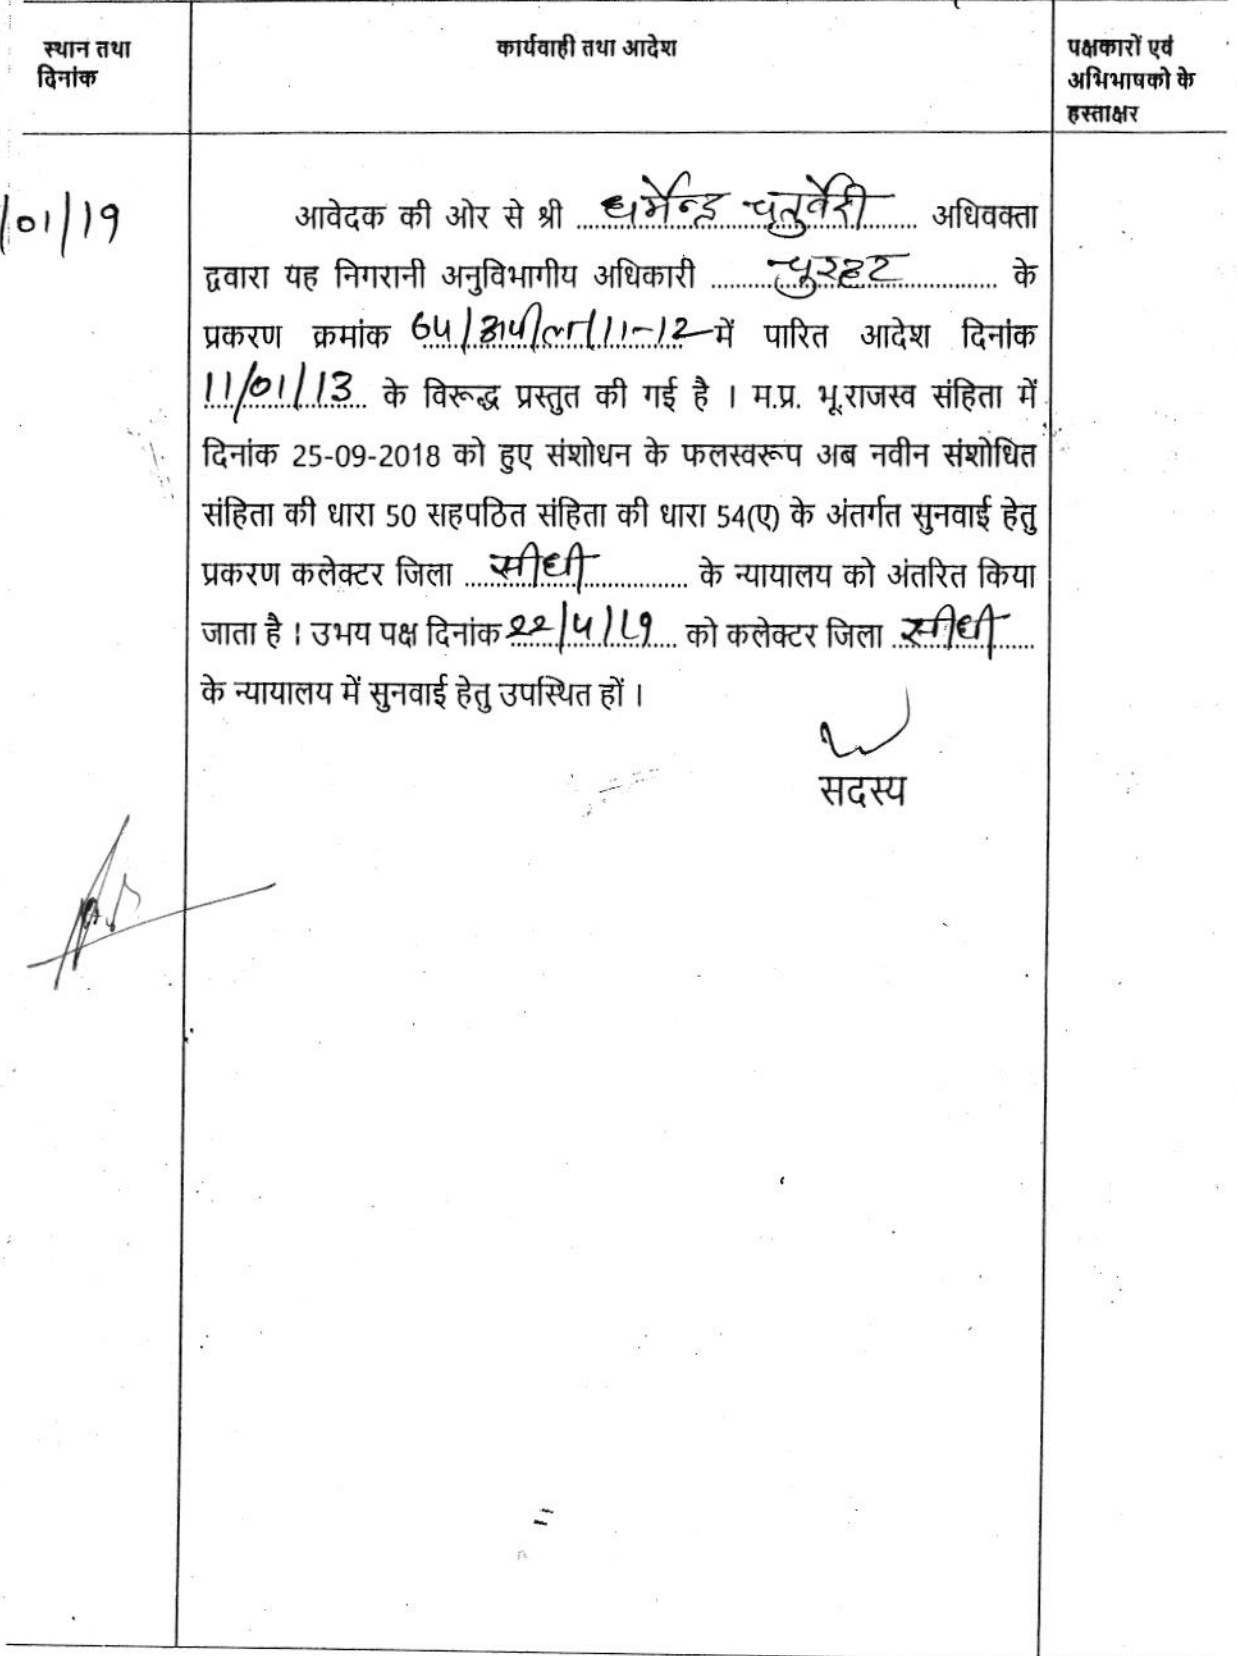 स्थान तथा
दिनांक
कार्यवाही तथा आदेश
पक्षकारों एवं
अभिभाषको के
हस्ताक्षर
/01/19
आवेदक की ओर से श्री धर्मेन्द्र चतुर्वेदी अधिवक्ता
द्वारा यह निगरानी अनुविभागीय अधिकारी चुरहट के
प्रकरण क्रमांक 64/अपील/11-12 में पारित आदेश दिनांक
11/01/13 के विरूद्ध प्रस्तुत की गई है । म.प्र. भू.राजस्व संहिता में
दिनांक 25-09-2018 को हुए संशोधन के फलस्वरूप अब नवीन संशोधित
संहिता की धारा 50 सहपठित संहिता की धारा 54(ए) के अंतर्गत सुनवाई हेतु
प्रकरण कलेक्टर जिला सीधी के न्यायालय को अंतरित किया
जाता है । उभय पक्ष दिनांक 22/4/19 को कलेक्टर जिला सीधी
के न्यायालय में सुनवाई हेतु उपस्थित हों ।
सदस्य